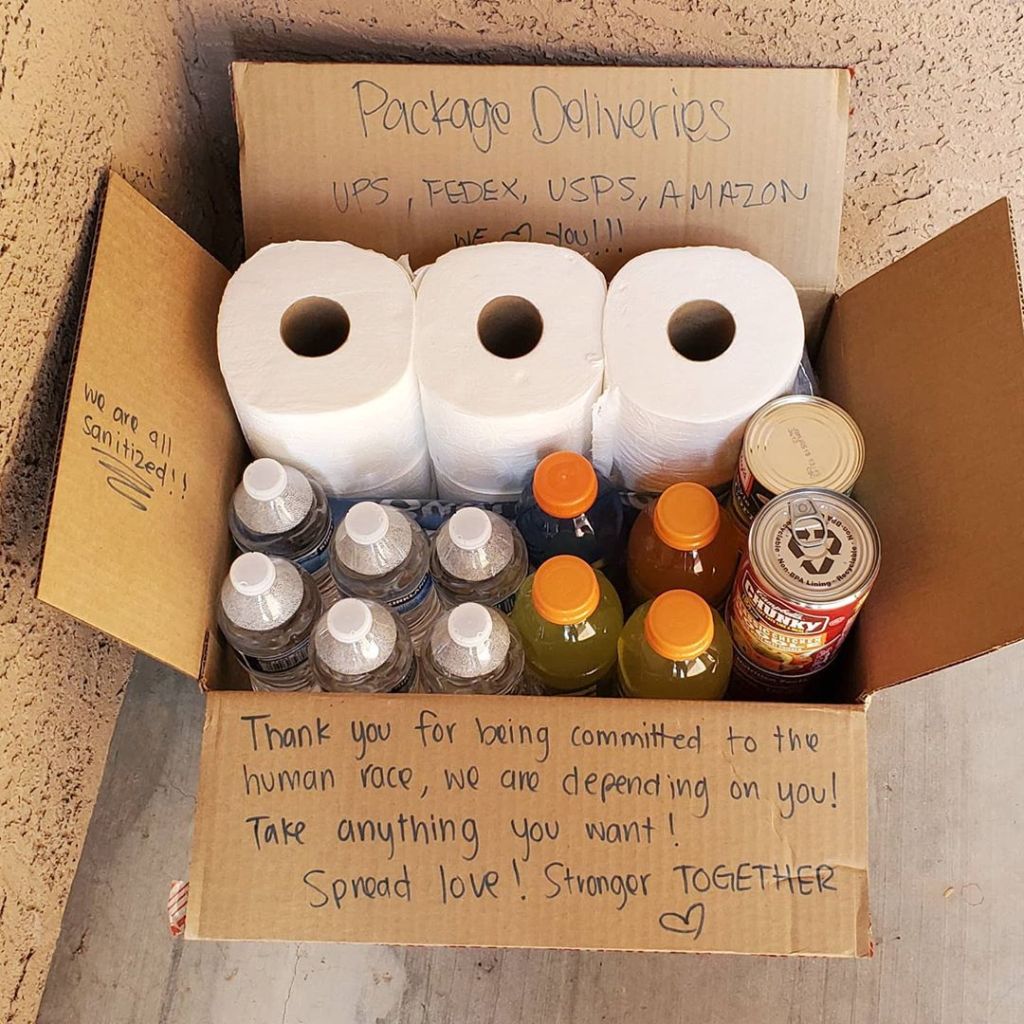 Package Deliveries
UPS, FEDEX, USPS, AMAZON
WE ♡ YOU!!!
we are all
sanitized!!
Non-BPA Lining
Recyclable
CHUNKY
Thank you for being committed to the
human race, we are depending on you!
Take anything you want!
Spread love! Stronger TOGETHER
♡